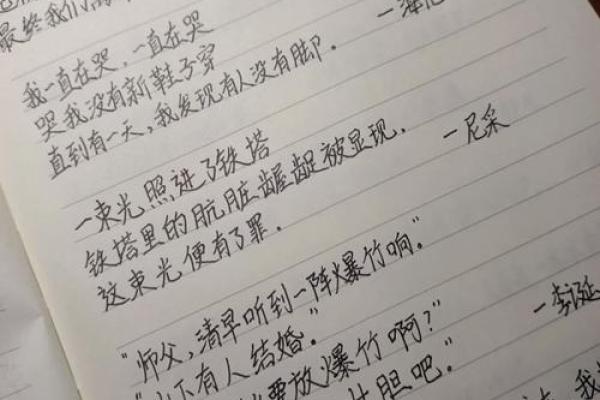 最终我们
—海
我一直在哭，一直在哭
哭我没有新鞋子穿
直到有一天，我发现有人没有脚。
一束光照进了铁塔
铁塔里的肮脏龌龊被显现，
这束光便有了罪。 —尼采
“师父，清早听到一阵爆竹响。”
下有人结婚。”
要放爆竹啊？” —李诞
胆吧。”
我